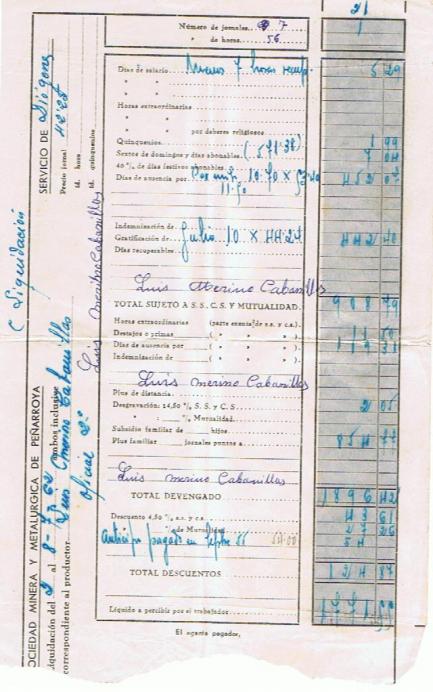 21
Número de jornales 7 1
" de horas 56
Días de salario Menos 7 horas recup. 5 29
Horas extraordinarias
" " por deberes religiosos
Quinquenios 1 99
Sextos de domingos y días abonables (571'38) 7 04
40 %, de días festivos abonables
Días de ausencia por 10'70 X 452 02
11'70
Indemnización de
Gratificación de Julio 10 X 44'24 442 40
Días recuperables
Luis Merino Cabanillas
TOTAL SUJETO A S. S. C. S. Y MUTUALIDAD. 908 79
Horas extraordinarias (parte exenta de s.s. y c.s.)
Destajos o primas ( " " " )
Días de ausencia por ( " " " )
Indemnización de ( " " " )
Luis merino Cabanillas
Plus de distancia
Desgravación: 14,50 % S. S. y C. S. 2 05
" : % Mutualidad
Subsidio familiar de hijos
Plus familiar jornales puntos a 854 77
Luis merino Cabanillas
TOTAL DEVENGADO 1896 42
Descuento 4,50 % s.s. y c.s. 43 61
" de Mutualidad 27 26
Anticipo pagado en 54'00 54
TOTAL DESCUENTOS 124 87
Líquido a percibir por el trabajador
El agente pagador,
( Liquidación
SOCIEDAD MINERA Y METALURGICA DE PEÑARROYA
Liquidación del 2 al 8-7-62 ambos inclusive
correspondiente al productor Luis Merino Cabanillas
Oficial 2ª
SERVICIO DE
Precio jornal 42'25
id. hora
id. quinquenios
Luis Merino Cabanillas